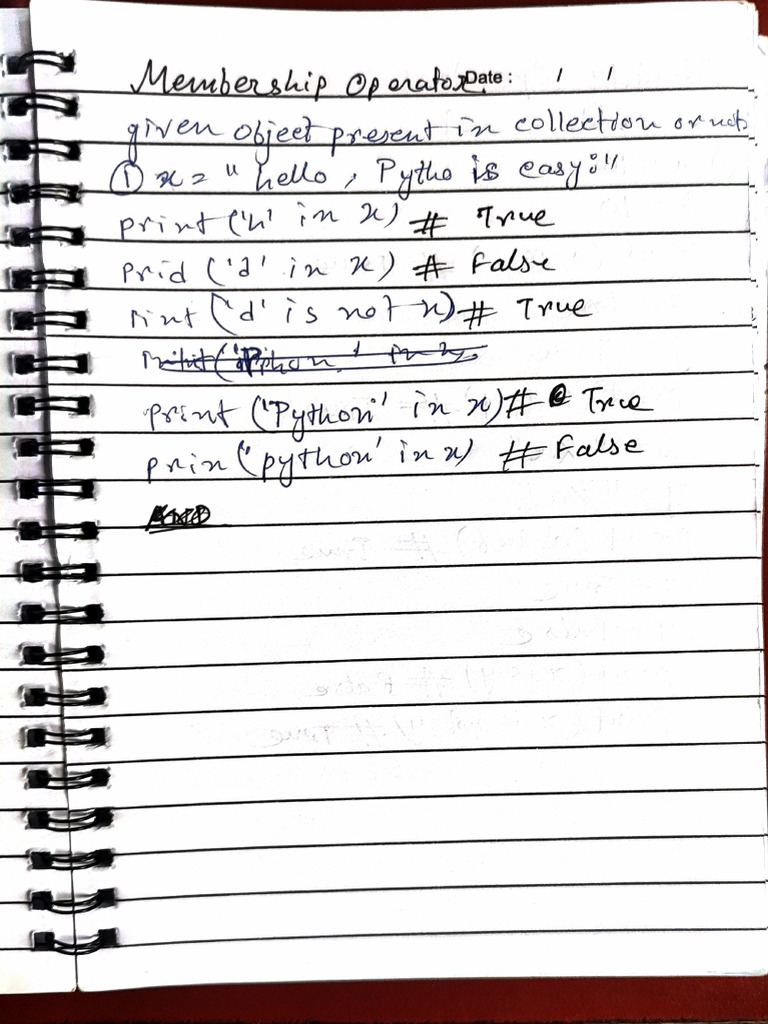 Membership Operator. Date : / /
given object present in collection or not
① x = " hello, Pytho is easy:"
print ('h' in x) # True
Prid ('d' in x) # False
rint ('d' is not x) # True
print ('Python' in x) # True
prin ('python' in x) # False